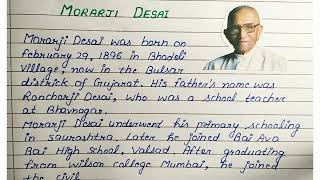 MORARJI DESAI
Morarji Desai was born on
February 29, 1896 in Bhadeli
Village, now in the Bulsar
district of Gujarat. His father's name was
Ranchorji Desai, who was a school teacher
at Bhavnagar.
Morarji Desai underwent his primary schooling
in saurashtra. Later he joined Bai Ava
Bai High school, Valsad. After graduating
from wilson college Mumbai, he joined
the civil